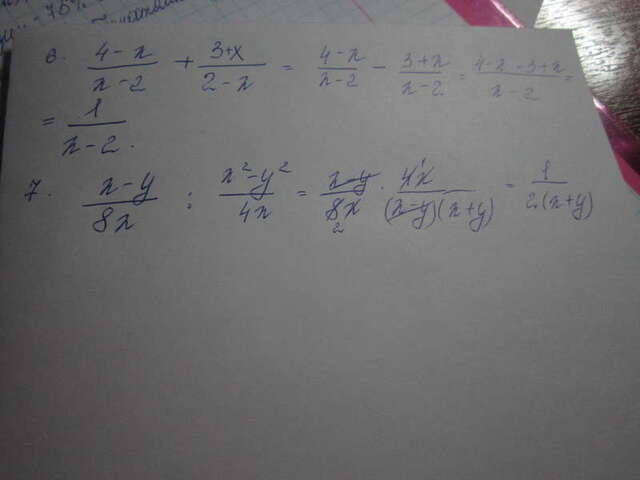 75%
6. (4-x)/(x-2) + (3+x)/(2-x) = (4-x)/(x-2) - (3+x)/(x-2) = (4-x-3+x)/(x-2) =
= 1/(x-2).
7. (x-y)/(8x) : (x²-y²)/(4x) = (x-y)/(8x) · (4x)/((x-y)(x+y)) = 1/(2(x+y))